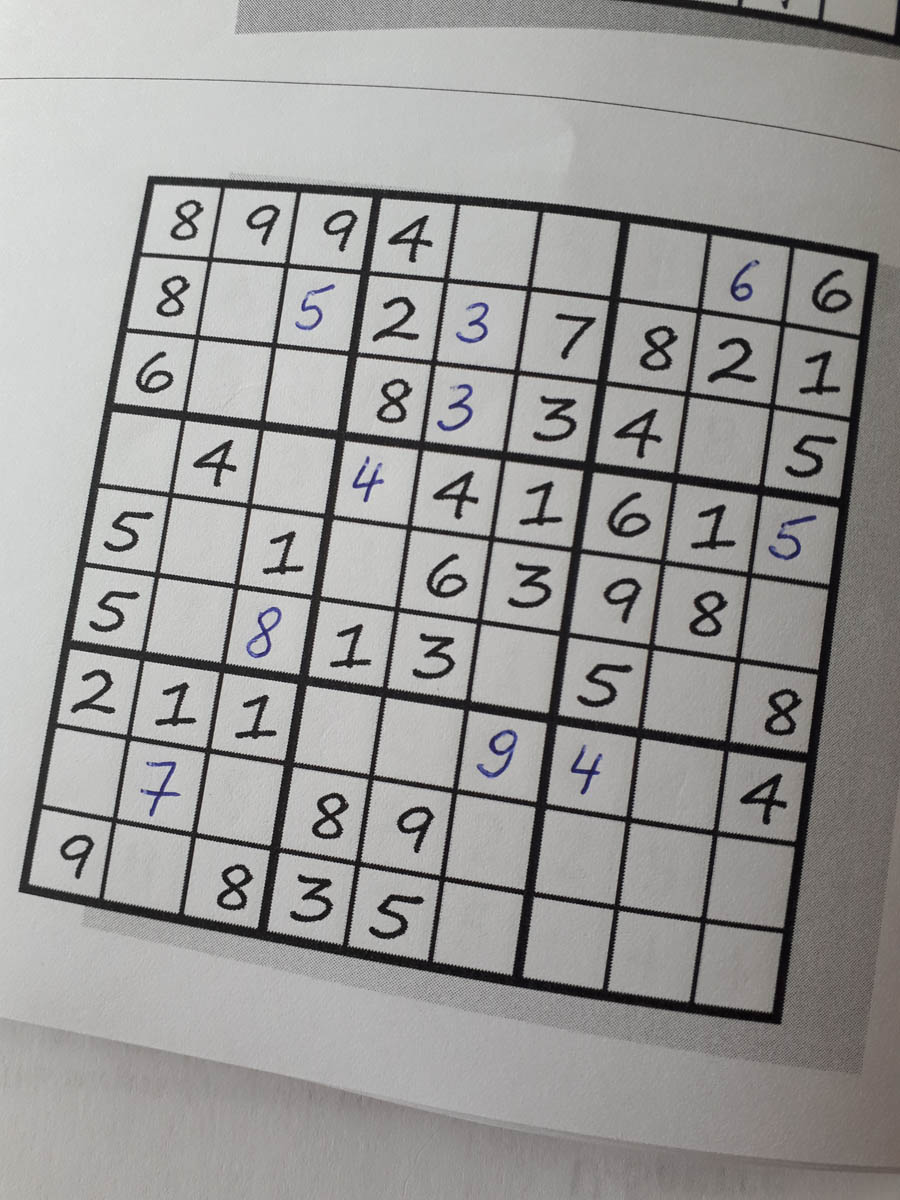 8 9 9 4 6 6
8 5 2 3 7 8 2 1
6 8 3 3 4 5
4 4 4 1 6 1 5
5 1 6 3 9 8
5 8 1 3 5 8
2 1 1 9 4 4
7 8 9
9 8 3 5